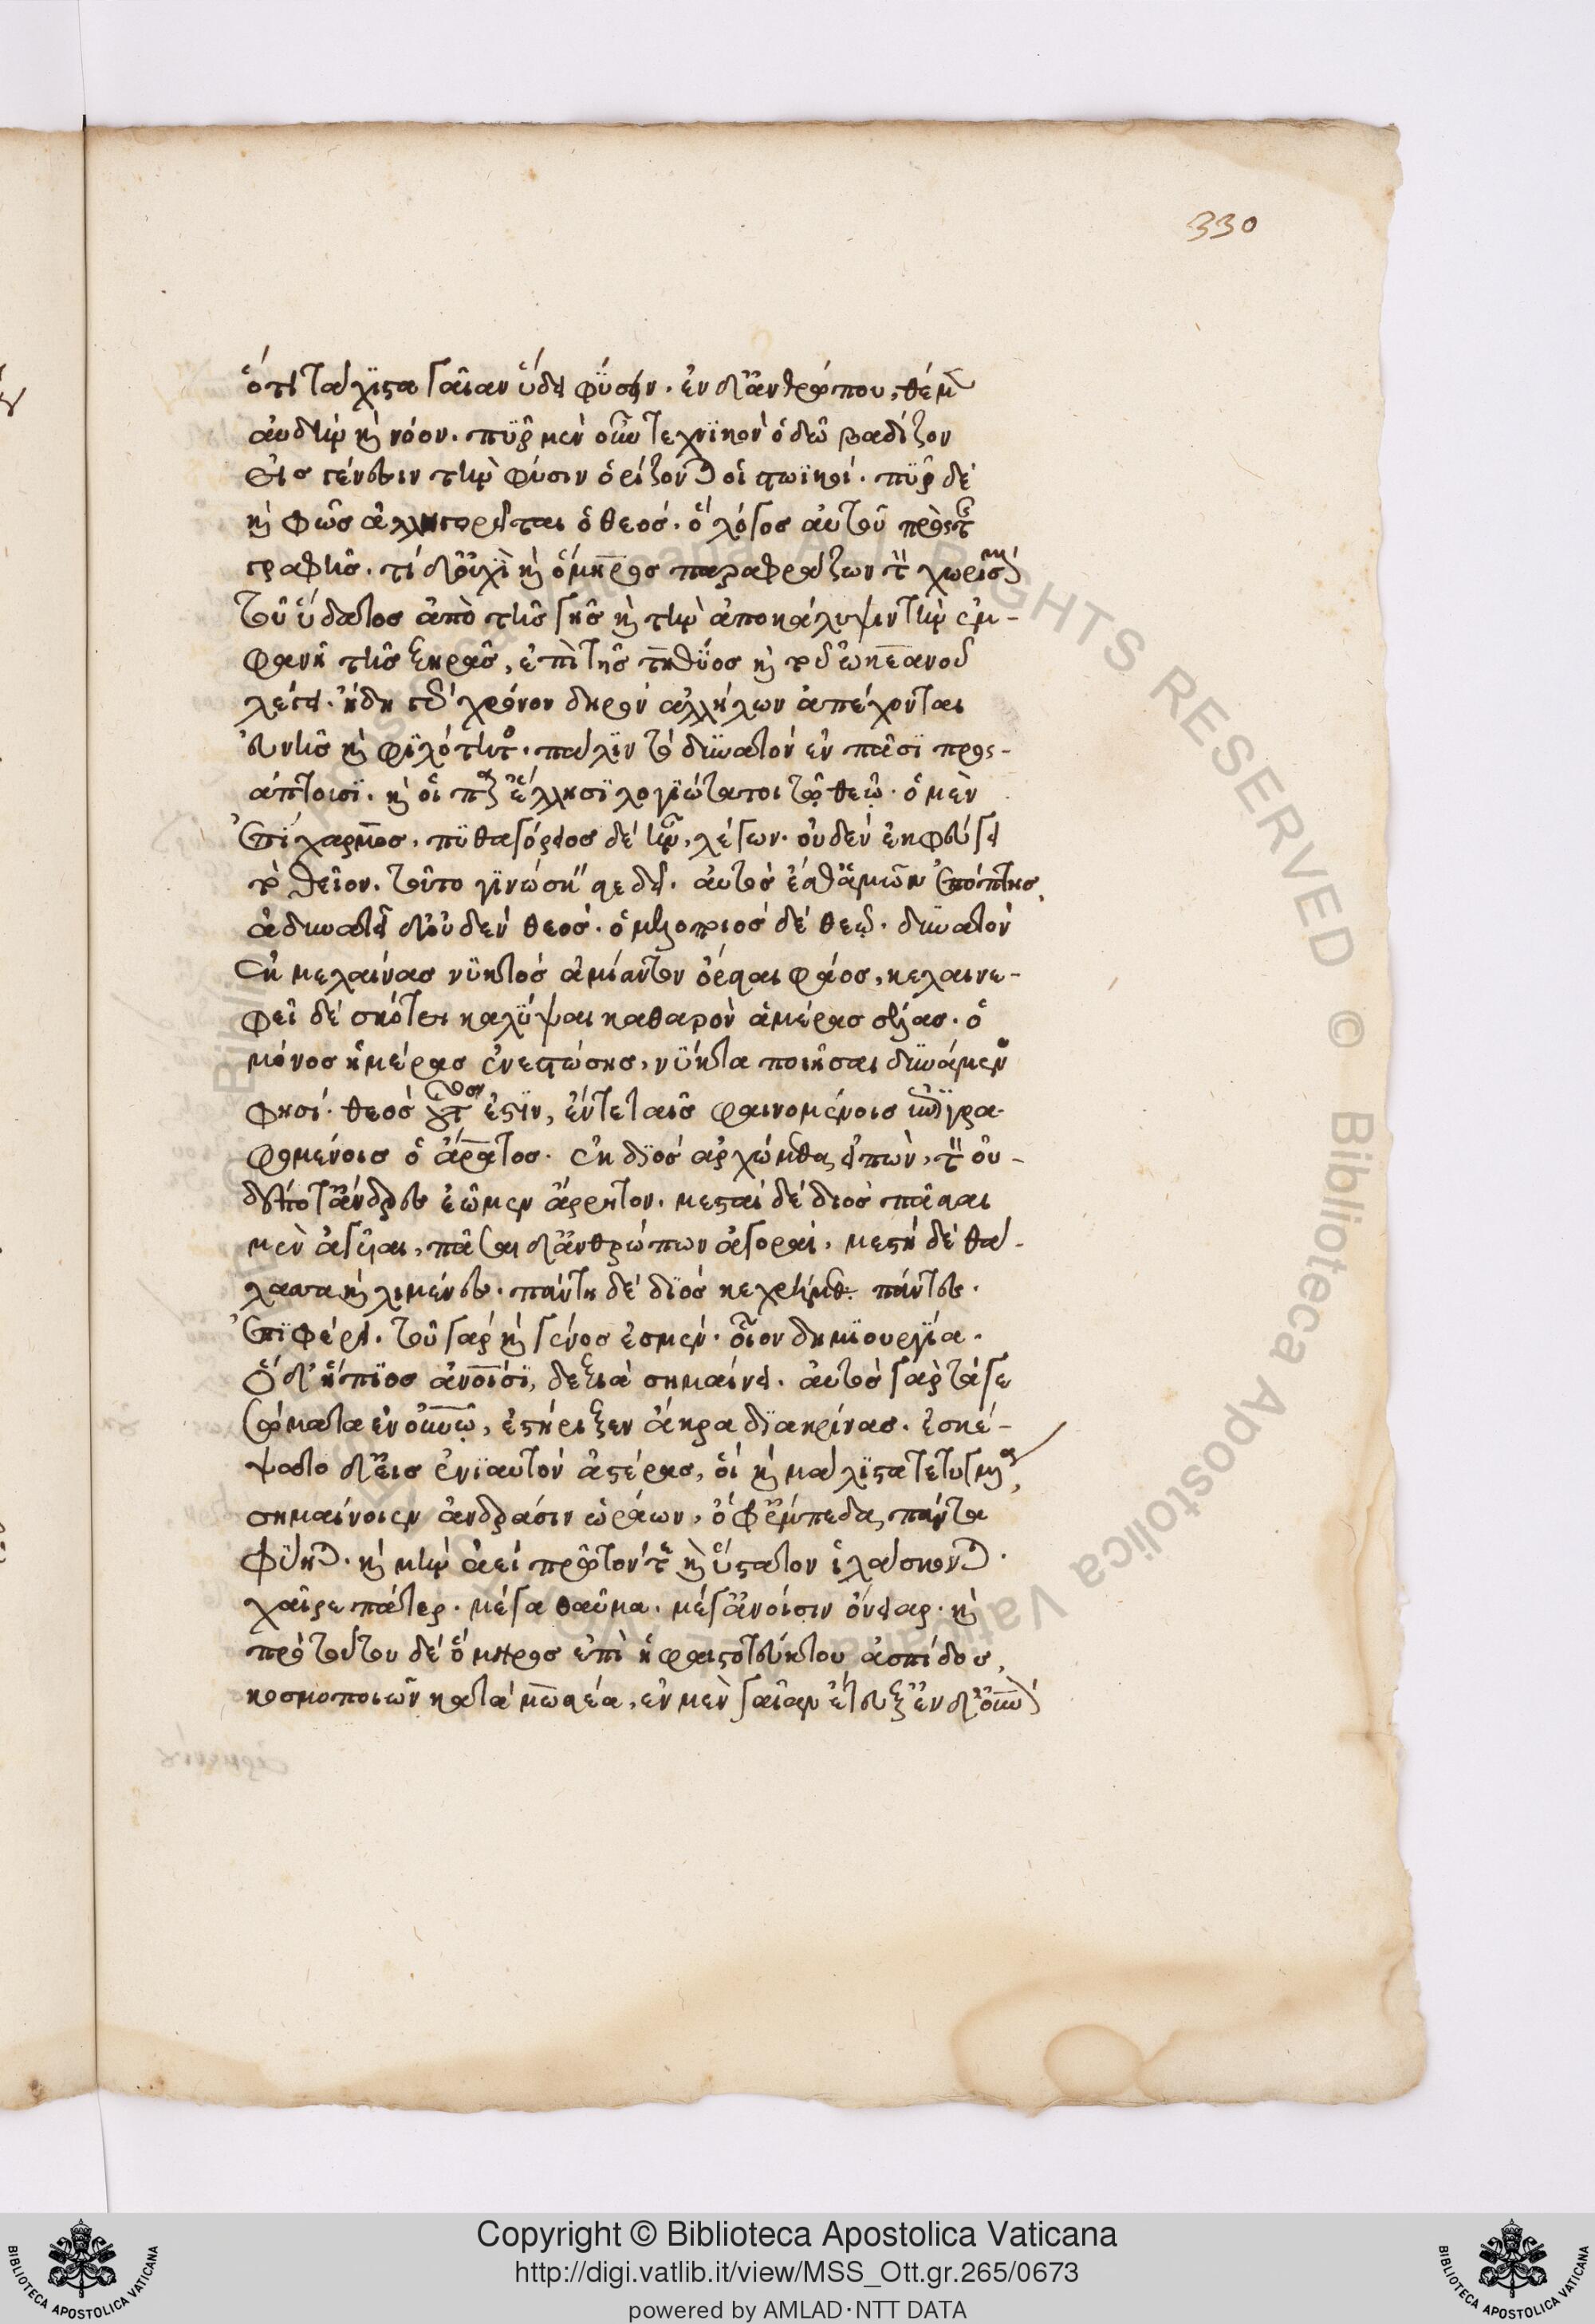 ὅτι τάχιστα γαῖαν ὕδει φύσην. ἐν δ' ἀνθρώπου, θέμεν
αὐδὴν καὶ νόον. πῦρ μὲν οὖν τεχνικὸν ὁδῷ βαδίζον
εἰς γένεσιν τὴν φύσιν ὁρίζονται οἱ στωϊκοί. πῦρ δὲ
καὶ φῶς ἀλληγορεῖται ὁ θεός. ὁ λόγος αὐτοῦ πρὸς τῆς
γραφῆς. τί δ' οὐχὶ καὶ ὅμηρος παραφράζων τὸν χωρισμὸν
τοῦ ὕδατος ἀπὸ τῆς γῆς καὶ τὴν ἀποκάλυψιν τὴν ἐμ-
φανῆ τῆς ξηρᾶς, ἐπὶ τῆς τηθύος καὶ τοῦ ὠκεανοῦ
λέγει. ἤδη γὰρ χρόνον δηρὸν ἀλλήλων ἀπέχονται
εὐνῆς καὶ φιλότητος. πάλιν τὸ δυνατὸν ἐν πᾶσι προς-
άπτουσι. καὶ οἱ παρ' ἕλλησι λογιώτατοι τῷ θεῷ. ὁ μὲν
ἐπίχαρμος, πυθαγόρειος δὲ ἦν, λέγων. οὐδὲν ἐκφεύγει
τὸ θεῖον. τοῦτο γινώσκειν σε δεῖ. αὐτὸς ἐσθ' ἁμῶν ἐπόπτης,
ἀδυνατεῖ δ' οὐδὲν θεός. ὁ μελοποιὸς δὲ θεῷ. δυνατὸν
ἐκ μελαίνας νυκτὸς ἀμίαντον ὄρσαι φάος, κελαινε-
φεῖ δὲ σκότει καλύψαι καθαρὸν ἁμέρας σέλας. ὁ
μόνος ἡμέρας ἐνεστώσης, νύκτα ποιῆσαι δυνάμενος
φησί. θεὸς οὗτος ἐστίν, ἔντε ταῖς φαινομένοις ἐπιγρα-
φομένοις ὁ ἄρατος. ἐκ διὸς ἀρχώμεθα εἰπὼν, τὸν οὐ-
δέποτ' ἄνδρες ἐῶμεν ἄρρητον. μεσταὶ δὲ διὸς πᾶσαι
μὲν ἀγυιαι, πᾶσαι δ' ἀνθρώπων ἀγοραί, μεστὴ δὲ θά-
λασσα καὶ λιμένες. πάντη δὲ διὸς κεχρήμεθα πάντες.
ἐπιφέρει. τοῦ γὰρ καὶ γένος ἐσμέν. οἷον δημιουργία.
ὁ δ' ἤπιος ἀνθρώποισι, δεξιὰ σημαίνει. αὐτὸς γὰρ τάγε
σήματα ἐν οὐρανῷ, ἐστήριξεν ἄστρα διακρίνας. ἐσκέ-
ψατο δ' εἰς ἐνιαυτὸν ἀστέρας, οἵ κε μάλιστα τετυγμένα,
σημαίνοιεν ἀνδράσιν ὡράων, ὄφρ' ἔμπεδα πάντα
φύηται. καὶ μὴν ἀεὶ πρῶτόν τε καὶ ὕστατον ἱλάσκονται.
χαῖρε πάτερ. μέγα θαῦμα. μέγ' ἀνθρώποισιν ὄνειαρ. καὶ
πρὸ τούτου δὲ ὅμηρος ἐπὶ ἡφαιστοτεύκτου ἀσπίδος,
κοσμοποιῶν κατὰ μωσέα, ἐν μὲν γαῖαν ἔτευξ' ἐν δ' οὐρανὸν
330
Copyright © Biblioteca Apostolica Vaticana
http://digi.vatlib.it/view/MSS_Ott.gr.265/0673
powered by AMLAD·NTT DATA